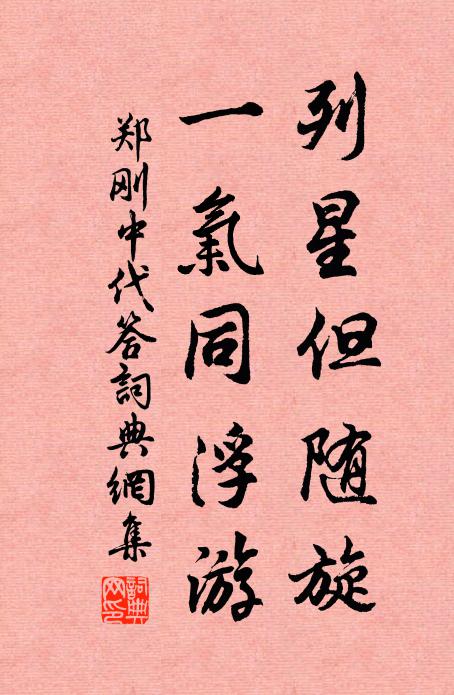 列星但随旋
一氣同浮游
郑刚中代答詞典網集
詞典網印